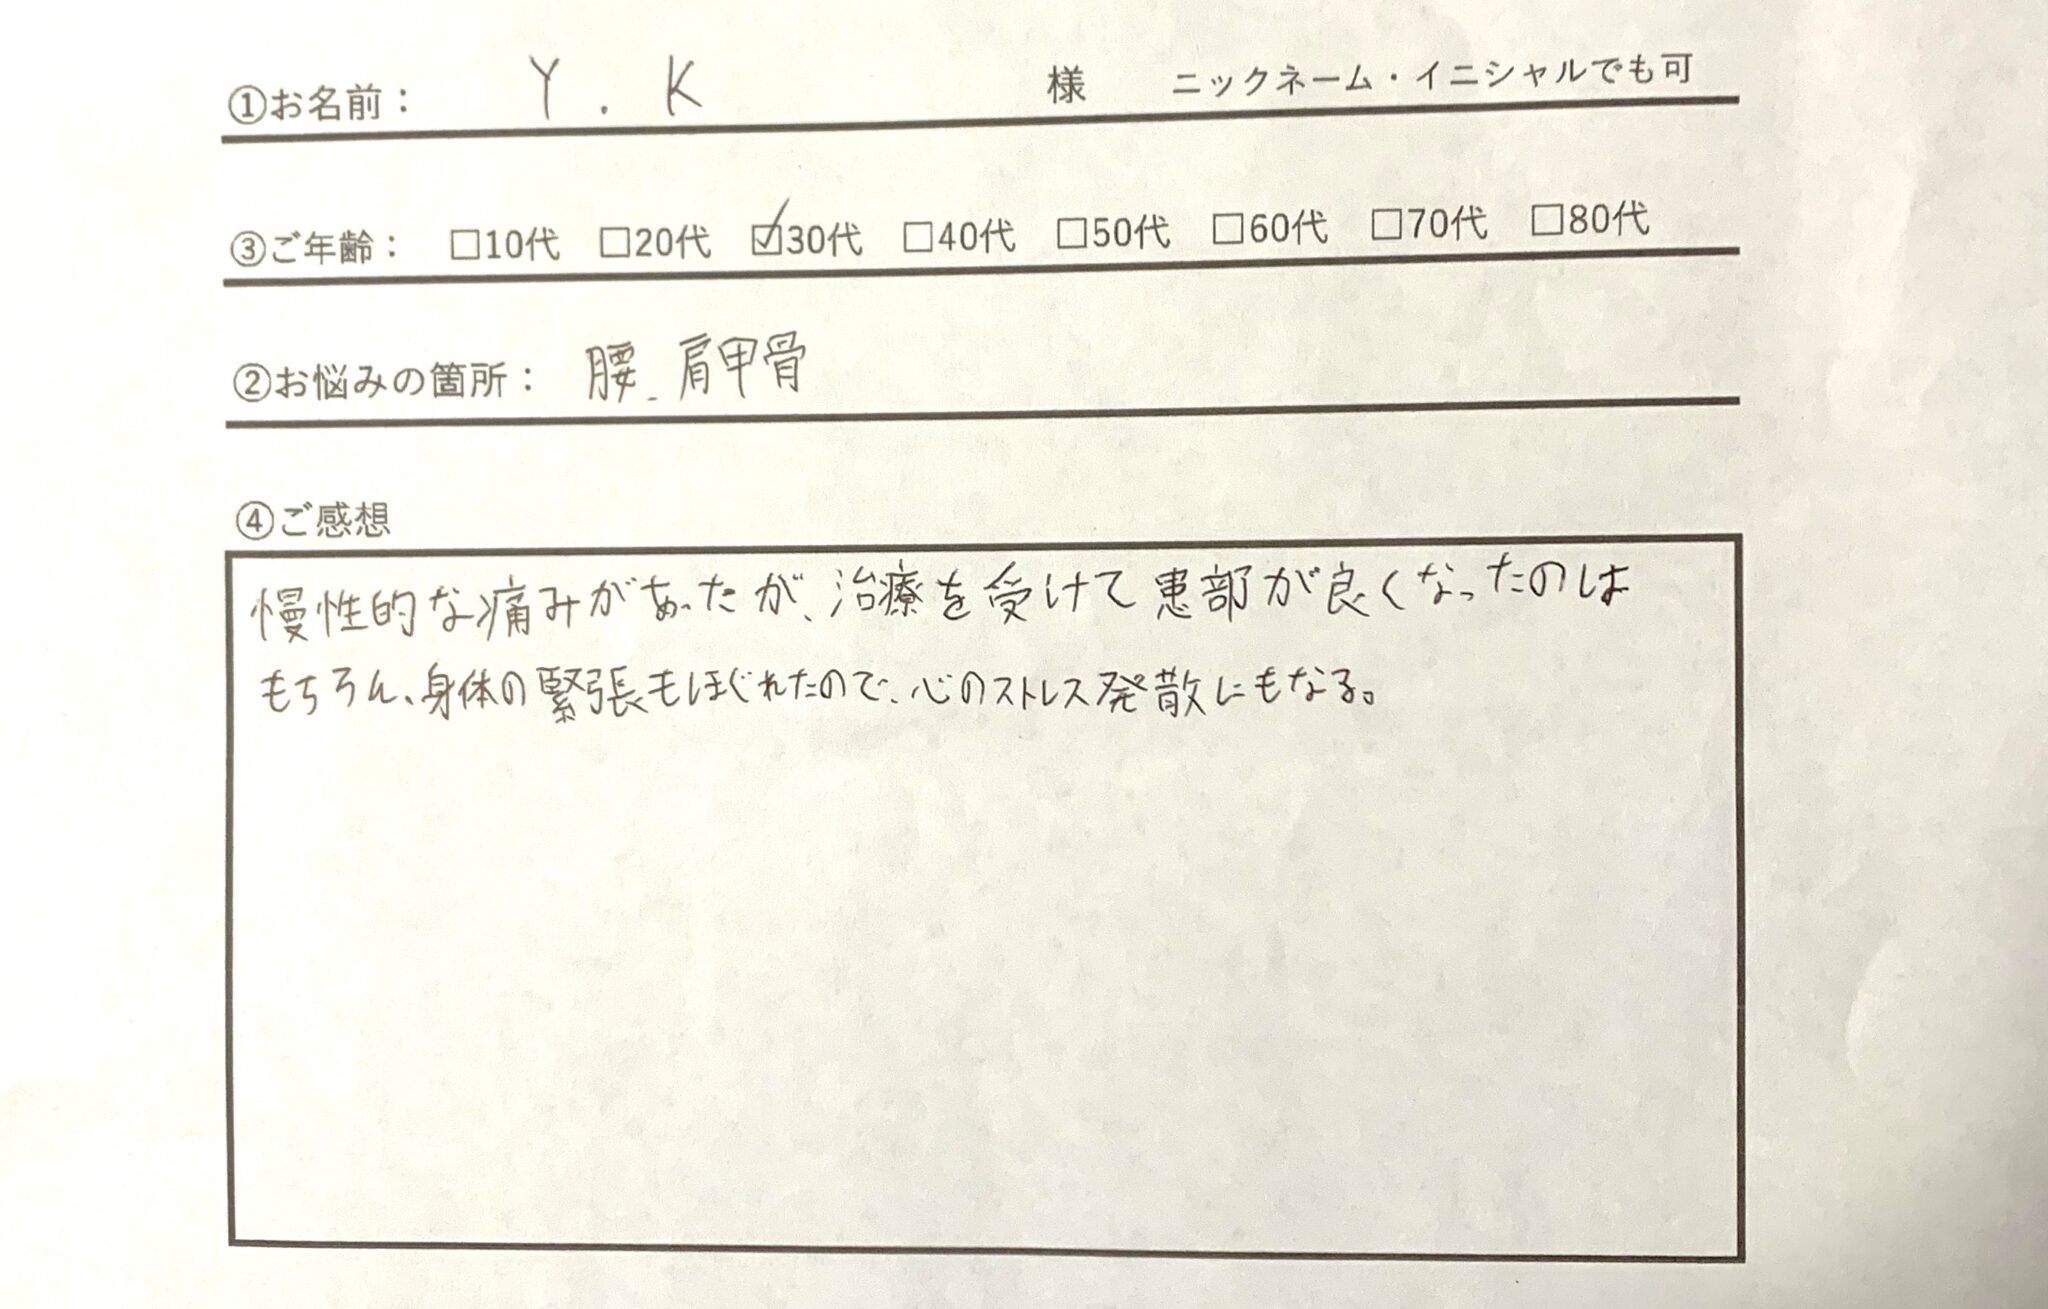 ①お名前： Y.K 様 ニックネーム・イニシャルでも可
③ご年齢： □10代 □20代 ☑30代 □40代 □50代 □60代 □70代 □80代
②お悩みの箇所： 腰、肩甲骨
④ご感想
慢性的な痛みがあったが、治療を受けて患部が良くなったのは
もちろん、身体の緊張もほぐれたので、心のストレス発散にもなる。